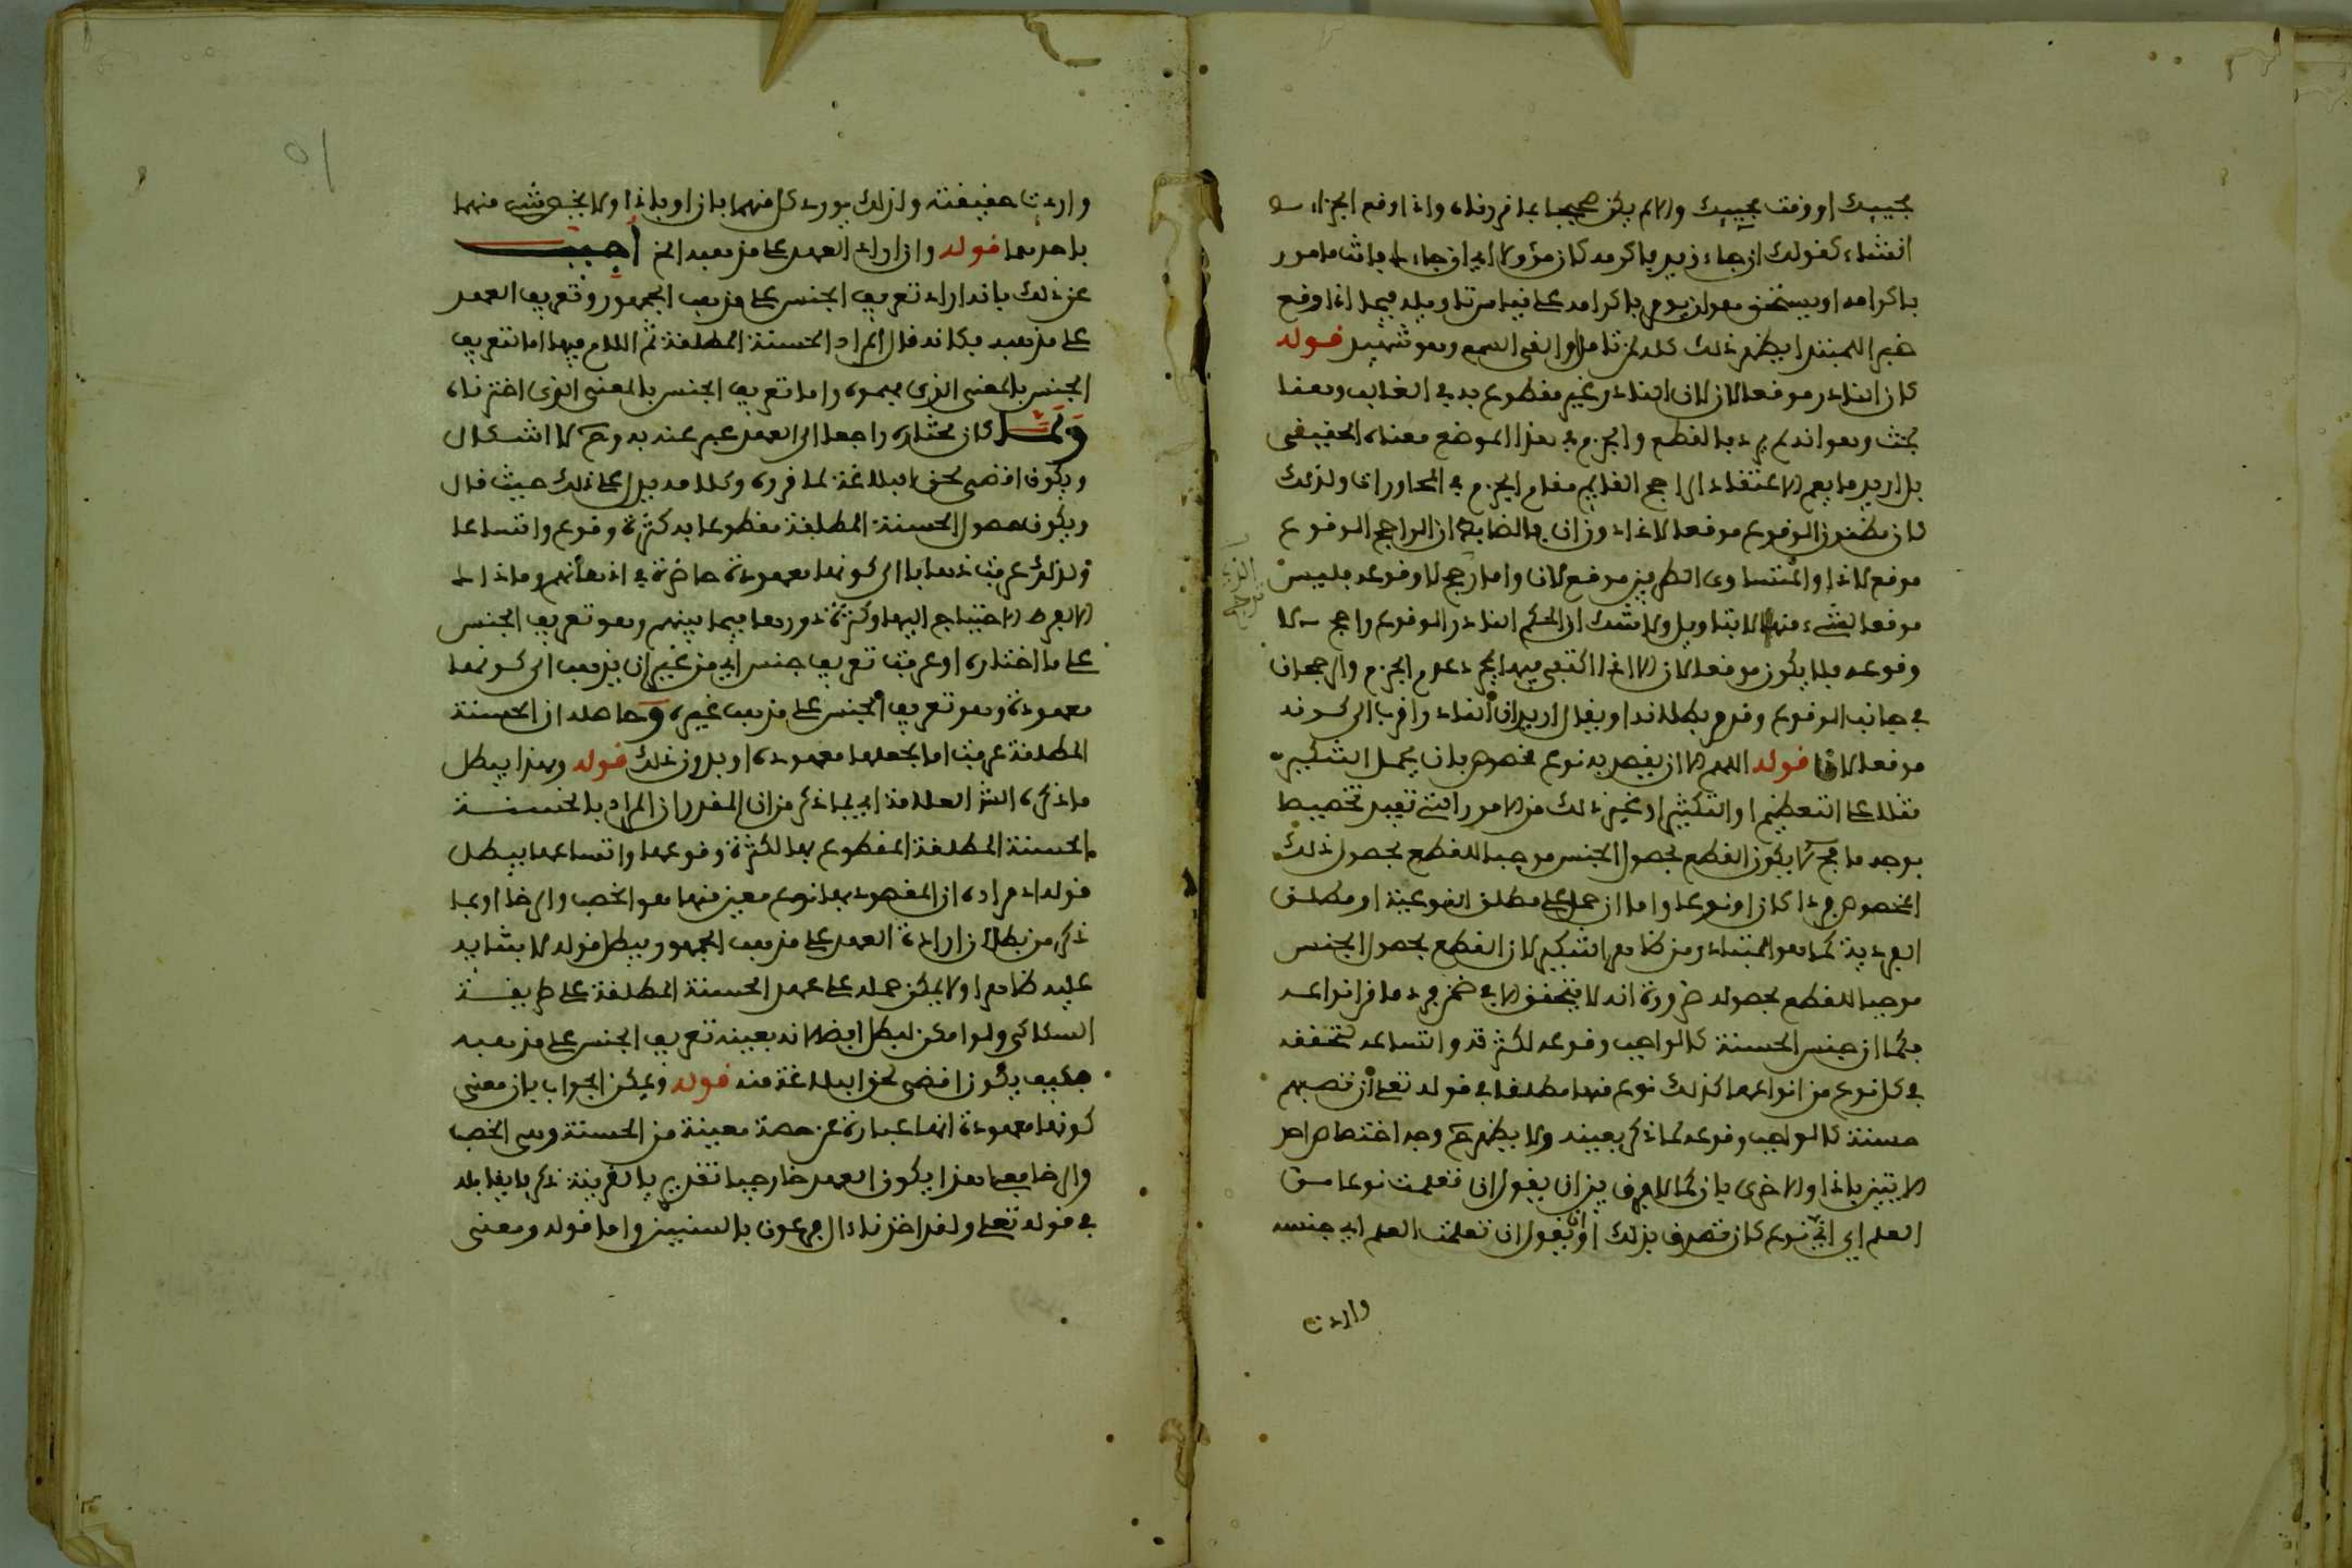 مجيبك او وقت مجيبك والا لم يكن صحيحا بما قررناه واذا وقع الجزاء
انشاء كقولك ان جاء زيد فاكرمه كان مؤولا اي ان جاء فانت مامور
باكرامه او يستحق هو ان يومر باكرامه على قياس تاويله فيما اذا وقع
خبر المبتدا يظهر ذلك كله لمن تامل والقى السمع وهو شهيد قوله
كان النادر موقعا لان لان النادر غير مقطوع به في الغالب وهنا
بحث وهو انه لم يرد بالقطع والجزم في هذا الموضع معناه الحقيقي
بل اريد ما يعم الاعتقاد الراجح القايم مقام الجزم في المحاورات ولذلك
كان مظنون الوقوع موقعا لاذا دون ان فالضابط ان الراجح الوقوع
موقع لاذا والمتساوي الطرفين موقع لان واما رجح لا وقوعه فليس
موقعا لشيء منهما الا بتاويل ولا شك ان الحكم النادر الوقوع راجح لا
وقوعه فلا يكون موقعا لان الا اذا اكتفي فيها بمجرد عدم الجزم والرجحان
في جانب الوقوع وقدم بطلانه او يقال اريد ان النادر اقرب الى كونه
موقعا لان قوله اللهم الا ان يقصد به نوع مخصوص بان يحمل التنكير
مثلا على التعظيم او التكثير او غير ذلك من الامور التي تفيد تخصيصا
بوجه ما فحـ لا يكون القطع بحصول الجنس موجبا للقطع بحصول ذلك
المخصوص فردا كان او نوعا واما ان حمل على مطلق النوعية او مطلق
الفردية كما هو المتبادر من ظاهر التنكير لان القطع بحصول الجنس
موجبا للقطع بحصوله ضرورة انه لا يتحقق الا في ضمن فرد ما من انواعه
فكما ان جنس الحسنة كالواجب وقوعه لكثرته واتساعه لتحققه
في كل نوع من انواعها كذلك نوع منها مطلقا في قوله تعلى ان تصبهم
حسنة كالواجب وقوعه لما ذكر بعينه ولا يظهر حـ وجه اختصاص احد
الايتين باذا والاخرى بان كما لا فرق بين ان يقول ان تعلمت نوعا من
العلم اي اي نوع كان تصرف بذلك او ان يقول ان تعلمت العلم اي جنسه
واردت
واردت حقيقته ولذلك يورد كل منهما بان او باذا ولا يختص شيء منهما
باحدهما قوله وان اراد العهد على مذهبه الخ اجيب
عن ذلك بانه اراد تعريف الجنس على مذهب الجمهور وتعريف العهد
على مذهبه فكانه قال المراد الحسنة المطلقة ثم اللام فيها اما تعريف
الجنس بالمعنى الذي فهموه واما تعريف الجنس بالمعنى الذي اخترناه
ولما كان مختاره راجعا الى العهد عبر عنه به وحـ لا اشكال
ويكون اقضى لحق البلاغة لما قرره وكلامه يدل على ذلك حيث قال
ويكون حصول الحسنة المطلقة مقطوعا به كثرة وقوع واتساعا
ولذلك عرفت ذهابا الى كونها معهودة حاضرة في اذهانهم وما ذاك
الا لفرط الاحتياج اليها وكثرة دورها فيما بينهم وهو تعريف الجنس
على ما اختاره او عرفت تعريف جنس اي من غير ان يذهب الى كونها
معهودة وهو تعريف الجنس على مذهب غيره وحاصله ان الحسنة
المطلقة عرفت اما بجعلها معهودة او بدون ذلك قوله وبهذا يبطل
ما ذكره الشر العلامة اي بما ذكر من ان المقدر ان المراد بالحسنة
الحسنة المطلقة المقطوع بها لكثرة وقوعها واتساعها يبطل
قوله اذ مراده ان المقصود بها نوع معين منها هو الخصب والرخا او بما
ذكر من بطلان ارادة العهد على مذهب الجمهور يبطل قوله لابتنايه
عليه ظاهرا ولا يمكن حمله على عهد الحسنة المطلقة على طريقة
السكاكي ولو امكن لبطل ايضا لانه بعينه تعريف الجنس على مذهبه
فكيف يكون اقضى لحق البلاغة منه قوله ويمكن الجواب بان معنى
كونها معهودة انها عبارة عن حصة معينة من الحسنة وهي الخصب
والرخا فعلى هذا يكون العهد خارجيا تقديريا بالقرينة ذكر ما يقابله
في قوله تعلى ولقد اخذنا ءال فرعون بالسنين واما قوله ومعنى